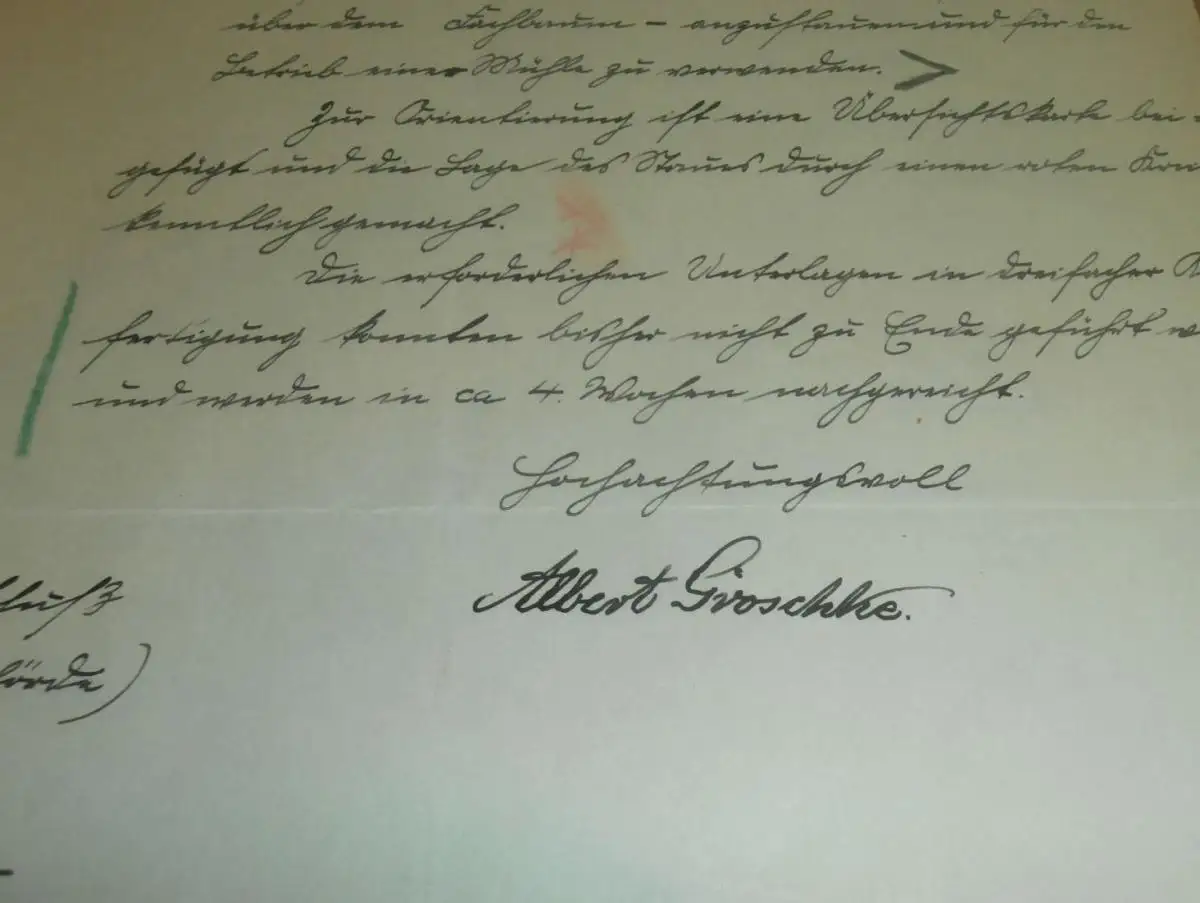 über dem Fachbaum – anzustauen und für den
Betrieb einer Mühle zu verwenden.
Zur Orientierung ist eine Übersichtskarte bei-
gefügt und die Lage des Staues durch einen roten
kenntlich gemacht.
Die erforderlichen Unterlagen in dreifacher
fertigung konnten bisher nicht zu Ende geführt
und werden in ca 4. Wochen nachgereicht.
Hochachtungsvoll
Albert Groschke.